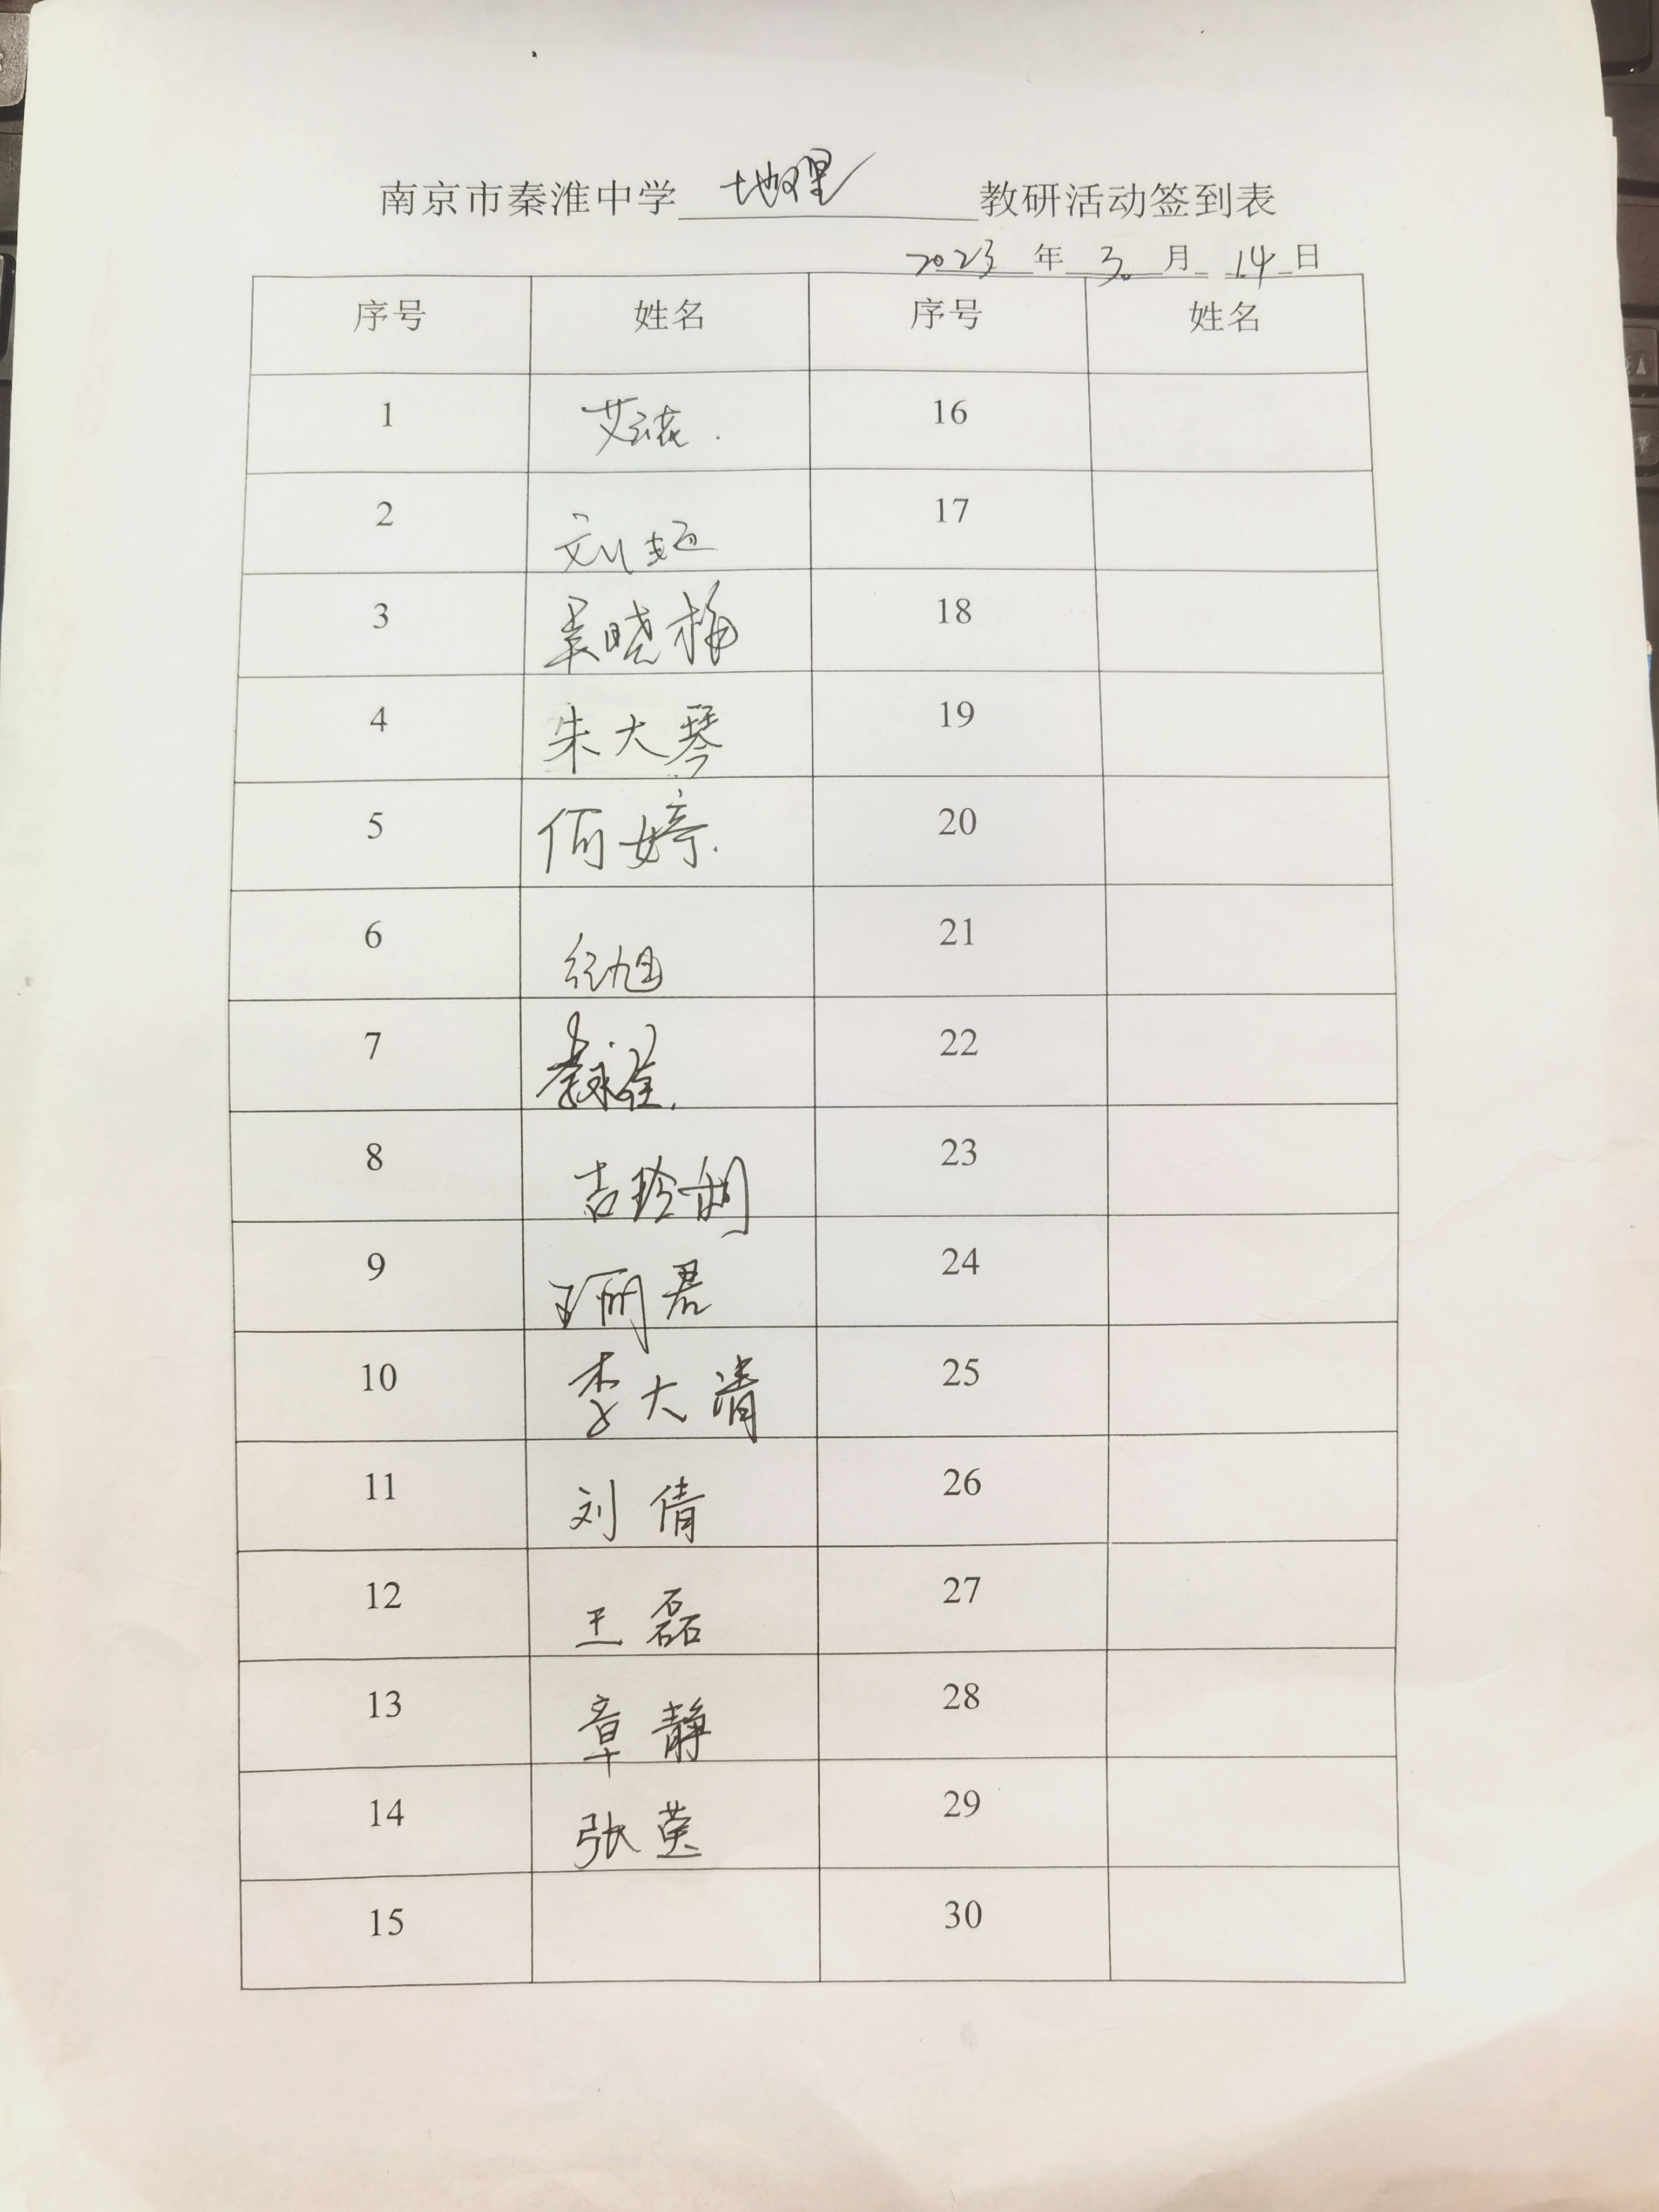 南京市秦淮中学 地理 教研活动签到表
2023 年 3. 月 14 日
序号 姓名 序号 姓名
1 16
2 刘 17
3 晓梅 18
4 朱大琴 19
5 何婷. 20
6 纪旭 21
7 22
8 吉玲 23
9 王丽君 24
10 李大清 25
11 刘倩 26
12 王磊 27
13 章静 28
14 张英 29
15 30